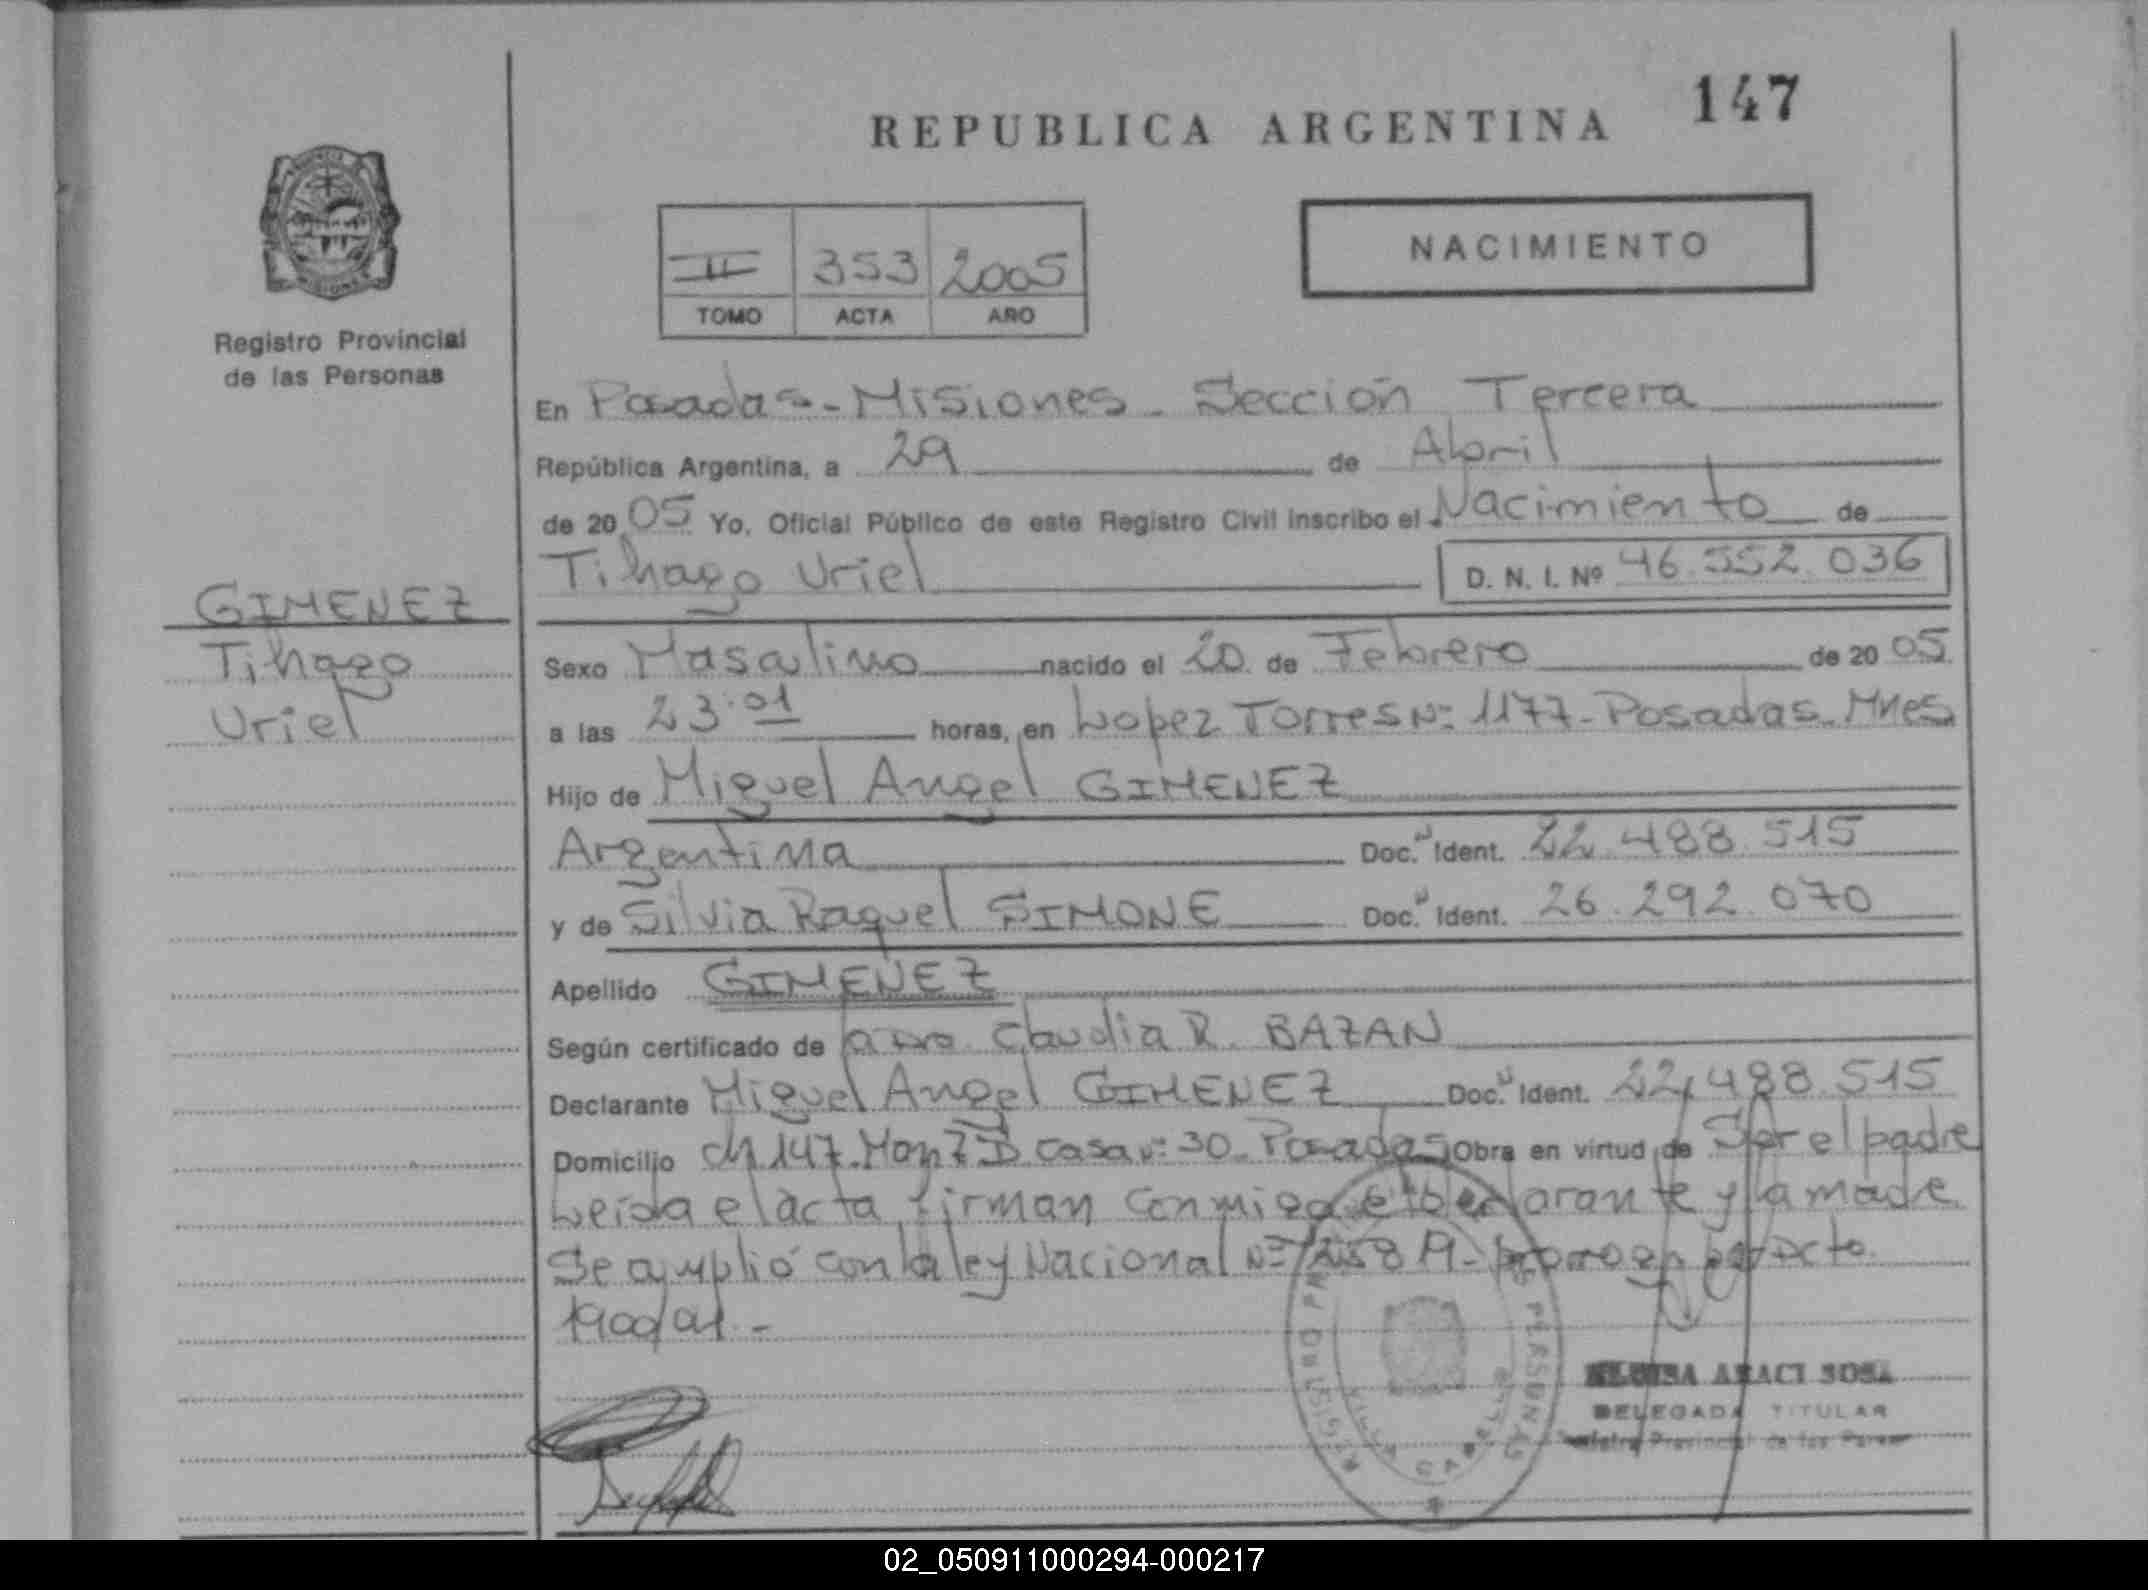 147
REPUBLICA ARGENTINA
NACIMIENTO
II 353 2005
TOMO ACTA AÑO
Registro Provincial
de las Personas
En Posadas - Misiones - Sección Tercera
República Argentina, a 29 de Abril
de 2005 Yo, Oficial Público de este Registro Civil inscribo el Nacimiento de
Tihago Uriel D. N. I. Nº 46.552.036
GIMENEZ
Tihago
Uriel
Sexo Masculino nacido el 20 de Febrero de 2005
a las 23:01 horas, en Lopez Torres Nº 1177 - Posadas - Mnes
Hijo de Miguel Angel GIMENEZ
Argentina Doc. Ident. 22.488.515
y de Silvia Raquel SIMONE Doc. Ident. 26.292.070
Apellido GIMENEZ
Según certificado de la Dra. Claudia R. BAZAN
Declarante Miguel Angel GIMENEZ Doc. Ident. 22.488.515
Domicilio Ch 147 Manz D casa nº 30 - Posadas Obra en virtud de Ser el padre
Leída el acta, firman conmigo el Declarante y la madre
Se amplió con la ley Nacional Nº por Dcto
1900/04.-
ARACI SOSA
DELEGADA TITULAR
Registro Provincial de las Personas
VILLA CABELLO
02_050911000294-000217